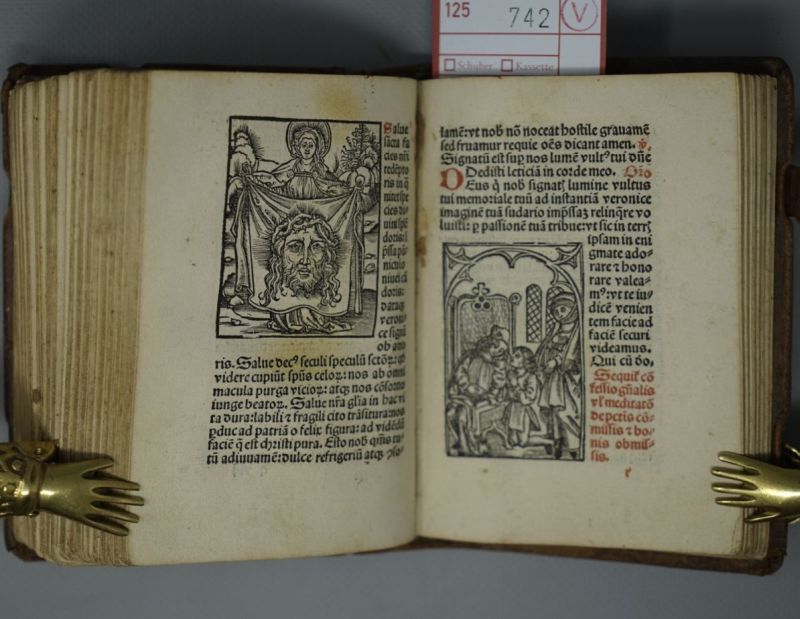 125
742
V
Schuber Kassette
Salue
sācta fa
cies nr̄i
redēpto
ris in q̄
nitet spe
cies di⸗
uini spē
doris: ī
niculo
niuei cā
doris:
dataqꝫ
veroni⸗
ce signū
ob amo
ris. Salue decꝰ seculi speculū sctōꝝ: qd̄
videre cupiūt spūs celoꝝ: nos ab omni
macula purga vicioꝝ: atqꝫ nos cōsorcio
iunge beatoꝝ. Salue nr̄a gl̄ia in hac vi
ta dura: labili ⁊ fragili cito trāsitura: nos
ꝑduc ad patriā o felix figura: ad vidēdā
faciē q̄ est christi pura. Esto nob̄ q̄sūs tu
tū adiuuamē: dulce refrigeriū atqꝫ ꝯso⸗
lamē: vt nob̄ nō noceat hostile grauamē
sed fruamur requie oēs dicant amen. ꝟ.
Signatū est suꝑ nos lumē vultꝰ tui dn̄e
Dedisti leticiā in corde meo. Or̄o
DEus q̄ nob̄ signatꝭ lumine vultus
tui memoriale tuū ad instantiā veronice
imaginē tuā sudario imp̄ssaꝫ relinq̄re vo
luisti: ꝑ passionē tuā tribue: vt sic in terrꝭ
ipsam in eni
gmate ado⸗
rare ⁊ hono
rare valea⸗
mꝰ: vt te iu⸗
dicē venien
tem facie ad
faciē securi
videamus.
Qui cū do.
Sequit̄ cō
fessio gn̄alis
vl̓ meditatō
de pctīs cō⸗
missis ⁊ bo⸗
nis obmis⸗
sis.
r